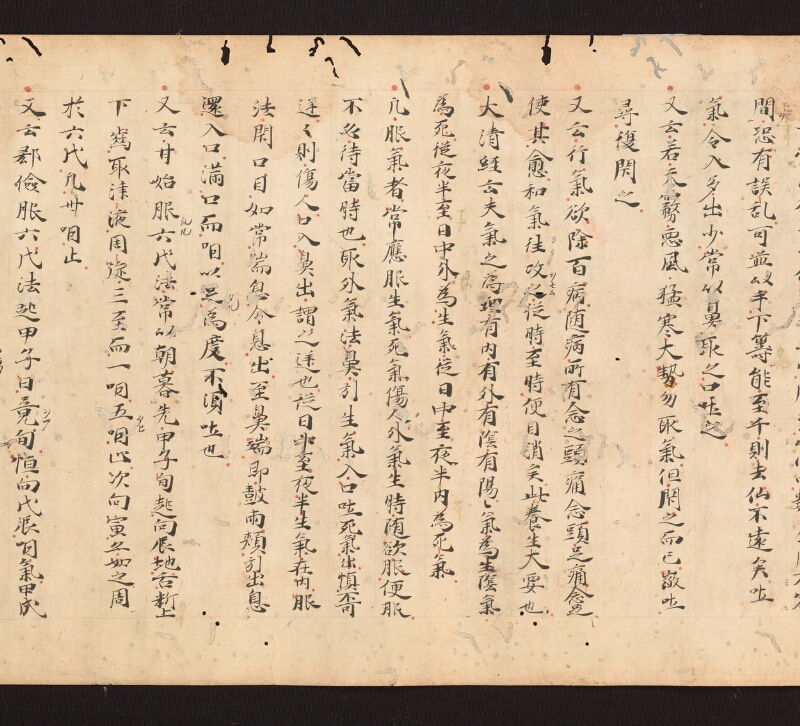 間恐有誤乱可並以手下筭能至千則去仙不遠矣吐
氣令入多出少常以鼻取之口吐之
又云若天霧悪風猛寒大熱勿取氣但閇之而已巌吐
尋復閇之
又云行氣欲除百病随病所有念之頭痛念頭足痛念足
使其愈和氣往攻之從時至時便自消矣此養生大要也
大清経云夫氣之為理有内有外有陰有陽々氣為生陰氣
為死從夜半至日中外為生氣從日中至夜半内為死氣
凡服氣者常應服生氣死氣傷人外氣生時随欲服便服
不必待當時也取外氣法鼻引生氣入口吐死氣出慎不可
逆々則傷人口入鼻出謂之逆也從日中至夜半生氣在内服
法閇口目如常喘息令息出至鼻端即皷両頬引出息
還入口満口而咽以足為度不須吐也
又云甘始服六戊法常以朝暮先甲子旬起向辰地舌料上
下齒取津液周旋三至而一咽五咽止次向寅亦如之周
於六戊凡卅咽止
又云郄儉服六戊法起甲子日竟旬恒向戊辰咽氣甲戌